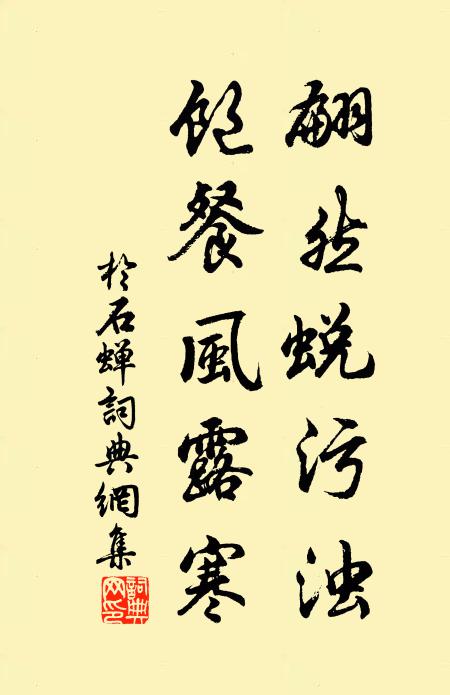 翩然蜕污浊
饱餐風露寒
於石蝉詞典網集
詞典網印